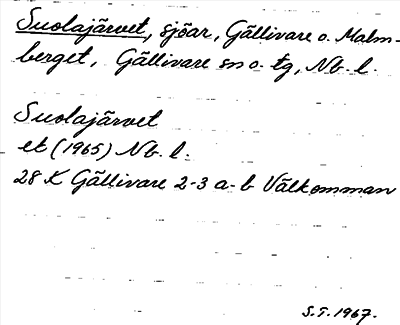 Suolajärvet, sjöar, Gällivare o. Malm-
berget, Gällivare sn o. tg, Nb. l.
Suolajärvet
ek (1965) Nb. l.
28 K Gällivare 2-3 a-b Välkomman
S.T. 1967.